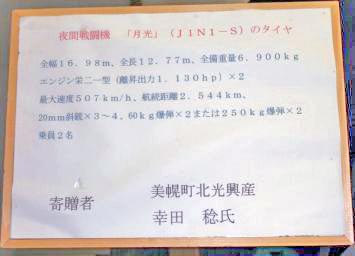 夜間戦闘機 「月光」(J1N1-S)のタイヤ
全幅16.98m、全長12.77m、全備重量6.900kg
エンジン栄二一型(離昇出力1.130hp)×2
最大速度507km/h、航続距離2.544km、
20mm斜銃×3~4、60kg爆弾×2または250kg爆弾×2
乗員2名
美幌町北光興産
寄贈者 幸田 稔氏